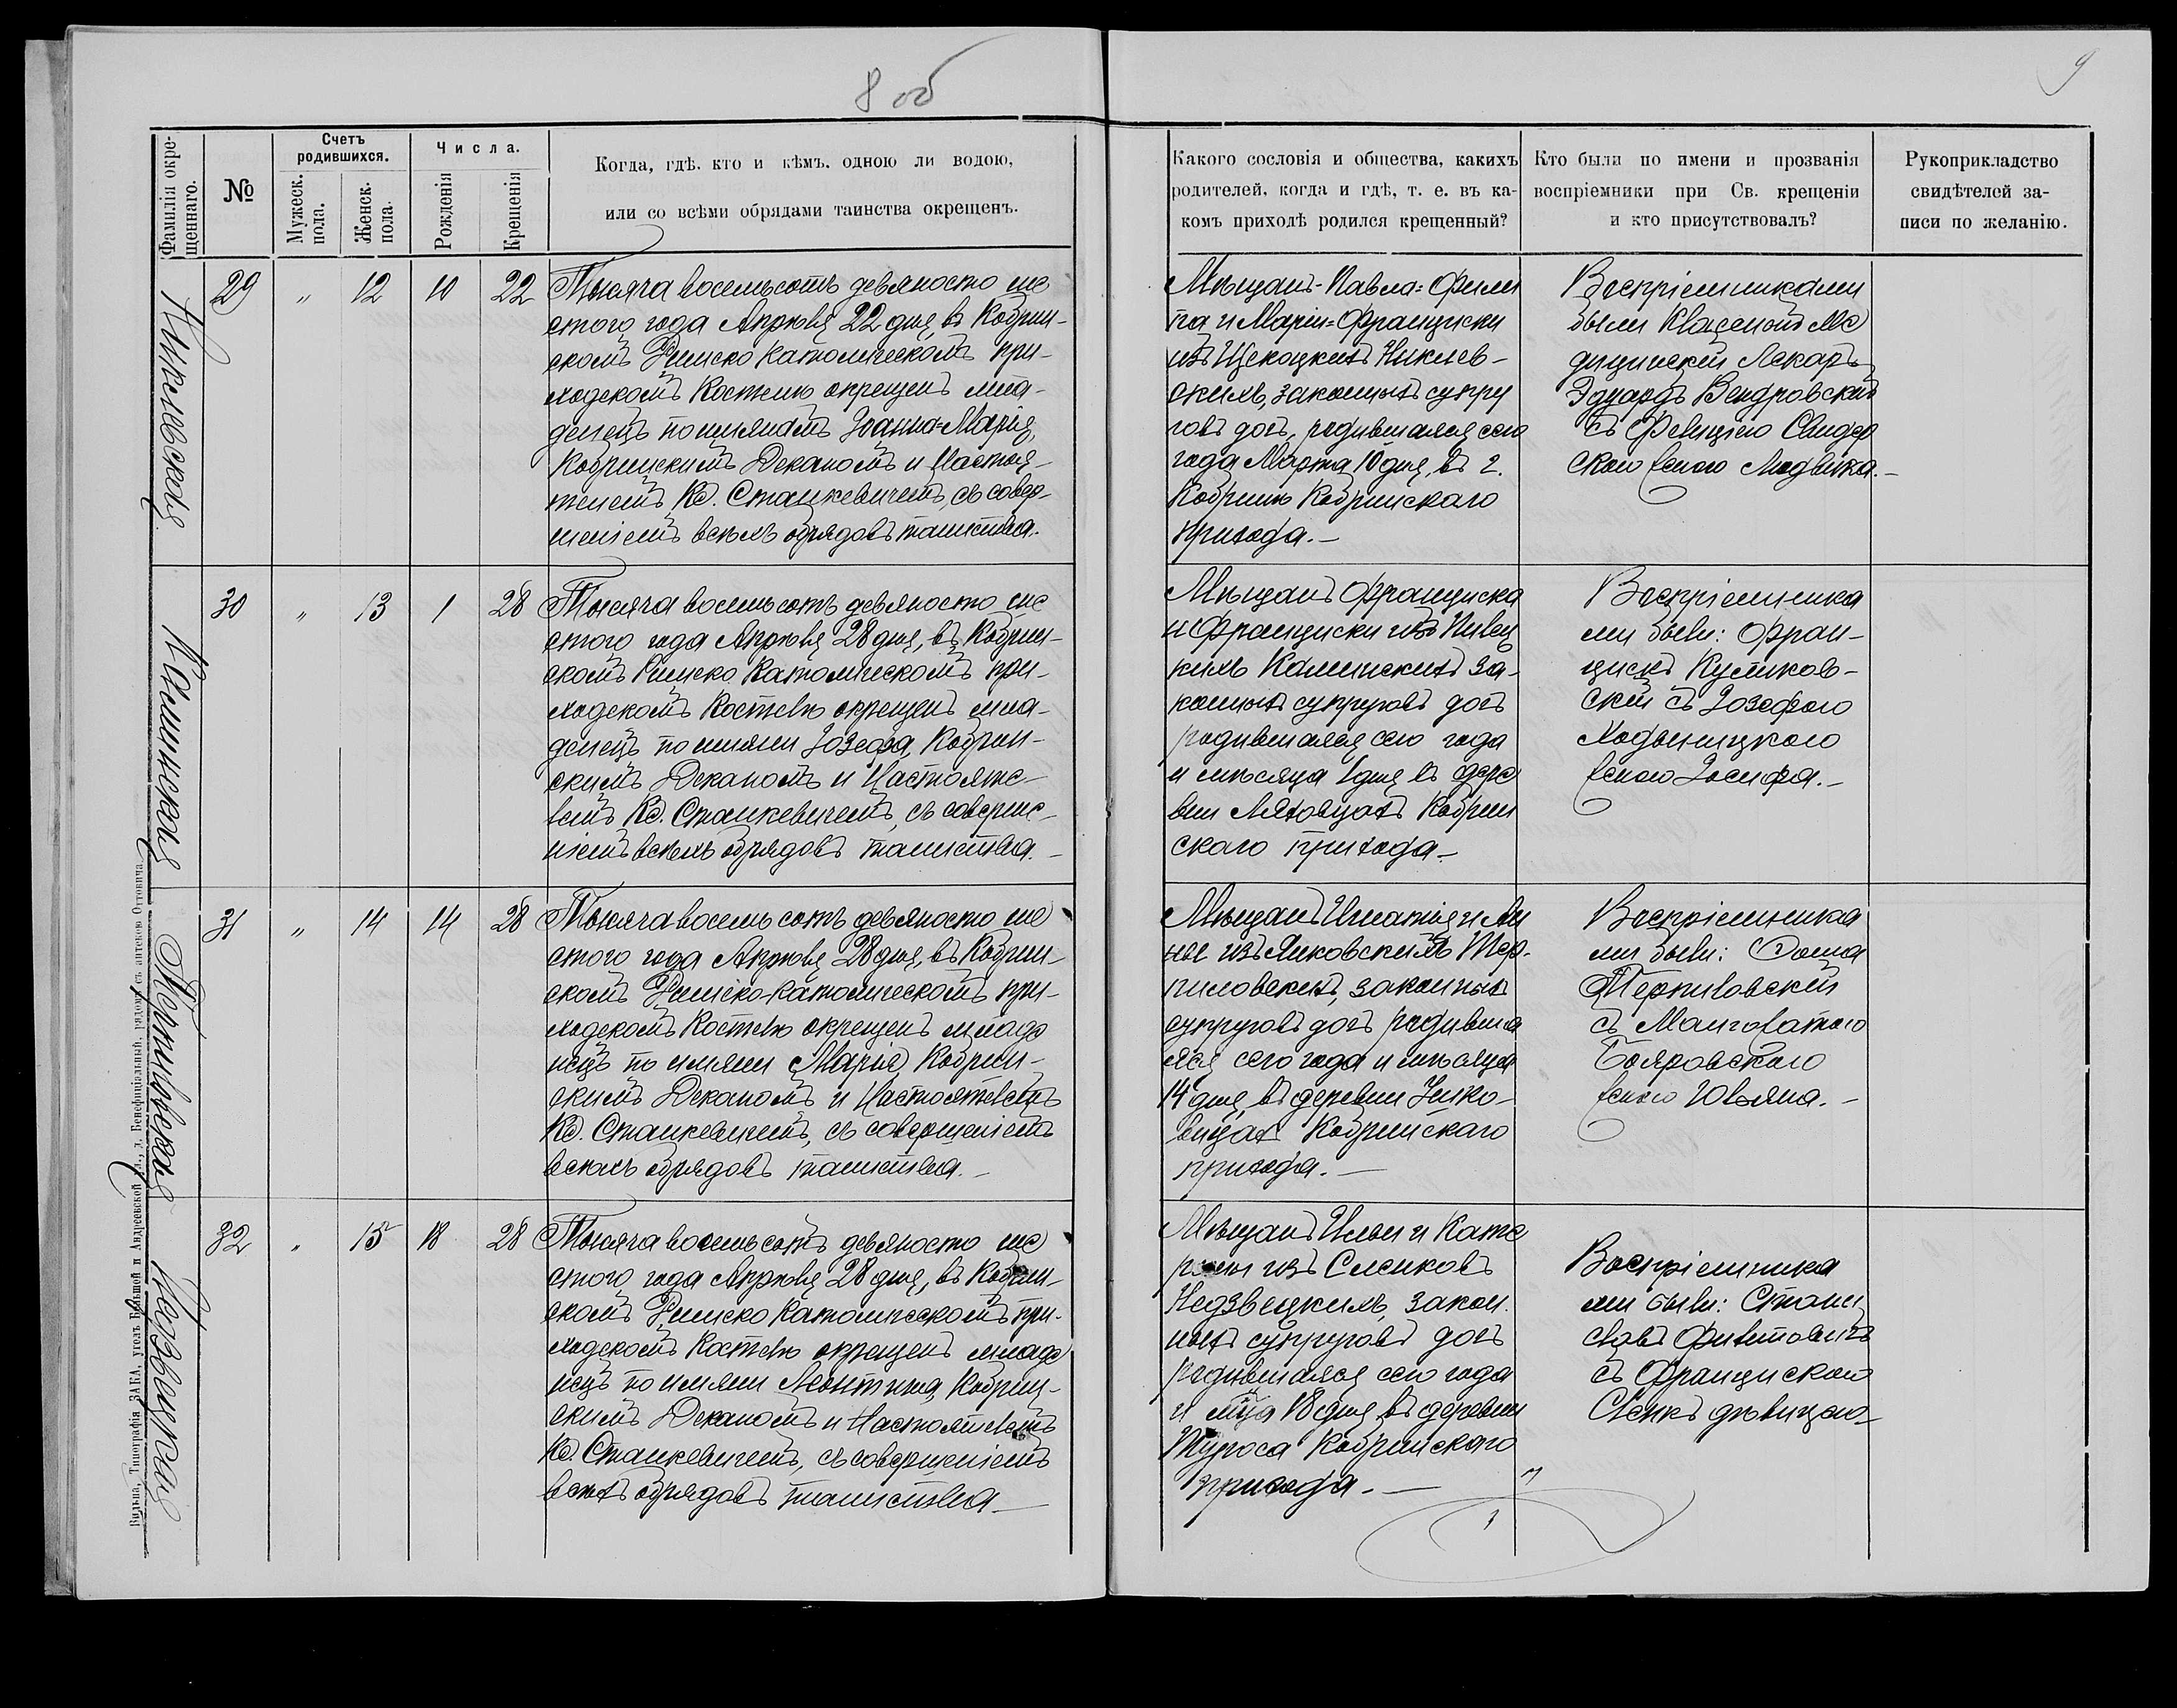 8 об
9
Фамилія окрещеннаго.
№
Счетъ родившихся.
Мужеск. пола.
Женск. пола.
Числа.
Рожденія
Крещенія
Когда, гдѣ, кто и кѣмъ, одною ли водою,
или со всѣми обрядами таинства окрещенъ.
Какого сословія и общества, какихъ
родителей, когда и гдѣ, т. е. въ ка-
комъ приходѣ родился крещенный?
Кто были по имени и прозванія
воспріемники при Св. крещеніи
и кто присутствовалъ?
Рукоприкладство
свидѣтелей за-
писи по желанію.
29 " 12 10 22
Тысяча восемьсотъ девяносто ше
стого года Апрѣля 22 дня, въ Кобрин-
скомъ Римско Католическомъ при-
ходскомъ Костелѣ окрещенъ мла-
денецъ по именамъ Іоанна-Марія,
Кобринскимъ Деканомъ и Настоя-
телемъ Кс. Станкевичемъ, съ совер-
шеніемъ всѣхъ обрядовъ таинства.
Мѣщанъ-Павла-Фили
па и Маріи-Франциски
изъ
скихъ, законныхъ супру
говъ дочь, родившаяся сего
года Марта 10 дня, въ г.
Кобринѣ Кобринскаго
прихода.-
Воспріемниками
были Классный Ме
дицинскій Лекарь
Эдуардъ Вендровскій
съ Фелиціею
скою женою Людвика.-
30 " 13 1 28
Каминская
Тысяча восемьсотъ девяносто ше
стого года Апрѣля 28 дня, въ Кобрин-
скомъ Римско Католическомъ при-
ходскомъ Костелѣ окрещенъ мла-
денецъ по имени Іозефа, Кобрин-
скимъ Деканомъ и Настояте-
лемъ Кс. Станкевичемъ, съ соверше-
ніемъ всѣхъ обрядовъ таинства.-
Мѣщанъ Франциска
и Франциски изъ
кихъ Каминскихъ за-
конныхъ супруговъ дочь
родившаяся сего года
и мѣсяца 1 дня въ дере
вни Ляховцахъ Кобрин
скаго прихода.-
Воспріемника
ми были: Фран-
цискъ Куликов-
скій съ Іозефою
Ходыницкою
женою Іосифа.-
31 " 14 14 28
Терпиловская
Тысяча восемьсотъ девяносто ше
стого года Апрѣля 28 дня, въ Кобрин-
скомъ Римско-Католическомъ при-
ходскомъ Костелѣ окрещенъ младе
нецъ по имени Марія, Кобрин-
скимъ Деканомъ и Настоятелемъ
Кс. Станкевичемъ, съ совершеніемъ
всѣхъ обрядовъ таинства.-
Мѣщанъ Игнатія и Ан
ны изъ Янковскихъ Тер-
пиловскихъ, законныхъ
супруговъ дочь родивша
яся сего года и мѣсяца
14 дня, въ деревни
Кобринскаго
прихода.-
Воспріемника
ми были: Фома
Терпиловскій
съ Малгожатою
Бояровскою
женою Юльяна.-
32 " 15 18 28
Недзвецкая
Тысяча восемьсотъ девяносто ше
стого года Апрѣля 28 дня, въ Кобрин-
скомъ Римско Католическомъ при-
ходскомъ Костелѣ окрещенъ младе
нецъ по имени Леонтина, Кобрин-
скимъ Деканомъ и Настоятелемъ
Кс. Станкевичемъ, съ совершеніемъ
всѣхъ обрядовъ таинства.-
Мѣщанъ Ильи и Кате
рины изъ
Недзвецкихъ, закон.
ныхъ супруговъ дочь
родившаяся сего года
и мца 18 дня въ деревни
Кобринскаго
прихода.-
Воспріемника
ми были: Стани
славъ Филиповичъ
съ Францискою
дѣвицею-
Вильна, Типографія ЗАКА, уголъ Большой и Андреевской ул., д. Бенефиціальный, рядомъ съ аптекою Оттовича.